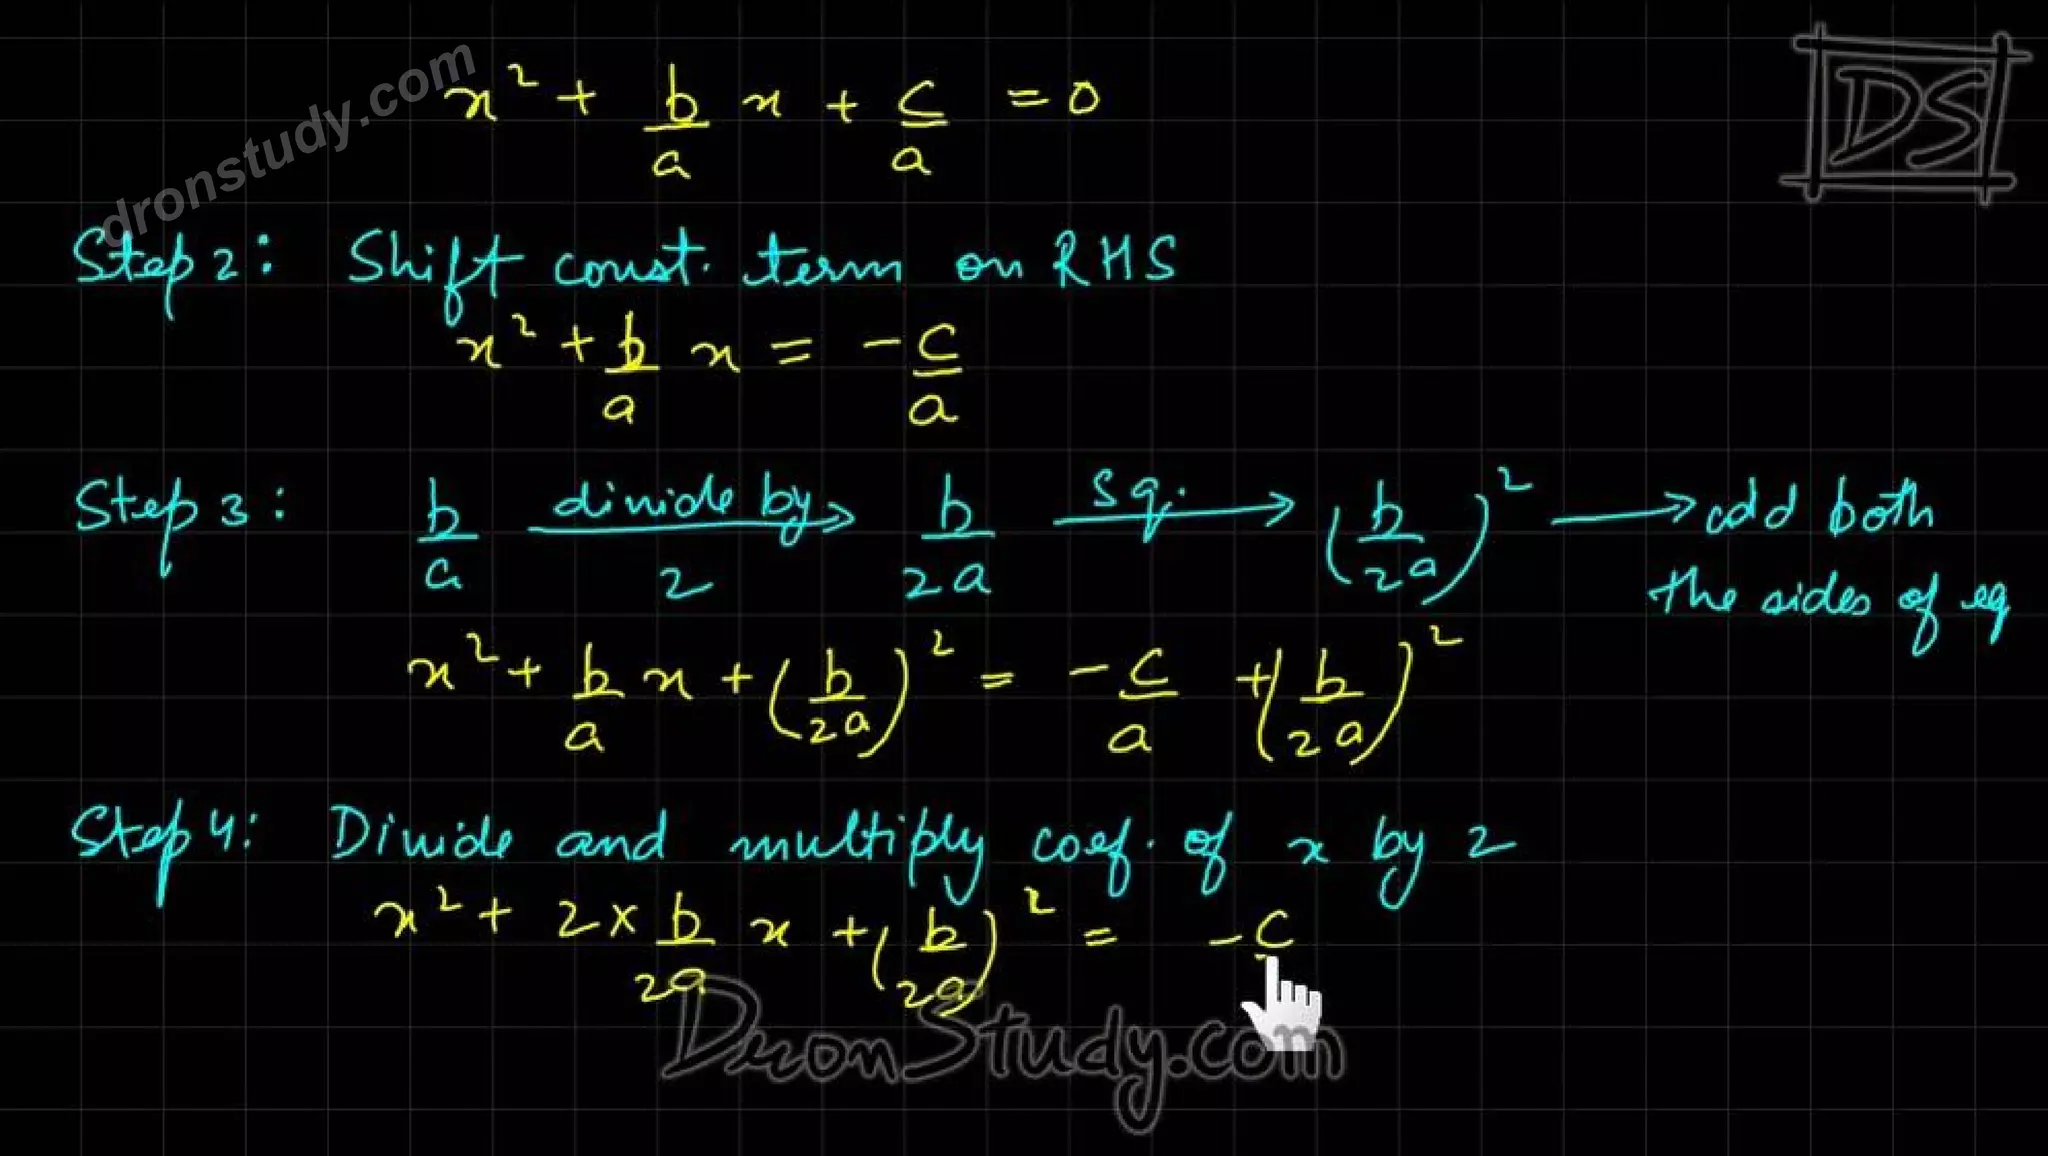 dronstudy.com
DS
x² + b/a x + c/a = 0
Step 2: Shift const. term on RHS
x² + b/a x = - c/a
Step 3: b/a divide by 2 → b/2a sq. → (b/2a)² → add both
the sides of eq
x² + b/a x + (b/2a)² = - c/a + (b/2a)²
Step 4: Divide and multiply coef. of x by 2
x² + 2 × b/2a x + (b/2a)² = - c
DronStudy.com